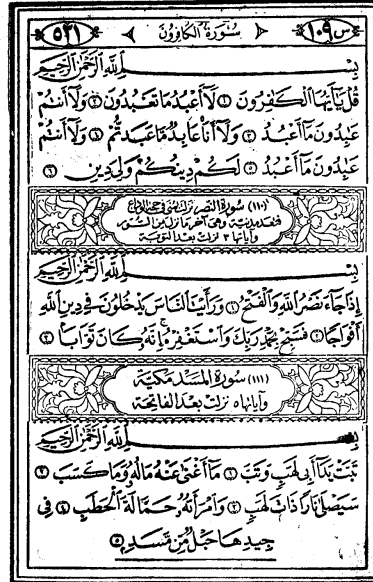 س ١٠٩ سُورَةُ الكَافِرُونَ ٥٢١
بِسْمِ ٱللَّهِ ٱلرَّحْمَٰنِ ٱلرَّحِيمِ
قُلْ يَٰٓأَيُّهَا ٱلْكَٰفِرُونَ ١ لَآ أَعْبُدُ مَا تَعْبُدُونَ ٢ وَلَآ أَنتُمْ
عَٰبِدُونَ مَآ أَعْبُدُ ٣ وَلَآ أَنَا۠ عَابِدٌ مَّا عَبَدتُّمْ ٤ وَلَآ أَنتُمْ
عَٰبِدُونَ مَآ أَعْبُدُ ٥ لَكُمْ دِينُكُمْ وَلِيَ دِينِ ٦
(١١٠) سورة النصر نزلت بمنى في حجة الوداع
فتعد مدنية وهي آخر ما نزل من السور
وآياتها ٣ نزلت بعد التوبة
بِسْمِ ٱللَّهِ ٱلرَّحْمَٰنِ ٱلرَّحِيمِ
إِذَا جَآءَ نَصْرُ ٱللَّهِ وَٱلْفَتْحُ ١ وَرَأَيْتَ ٱلنَّاسَ يَدْخُلُونَ فِى دِينِ ٱللَّهِ
أَفْوَاجًا ٢ فَسَبِّحْ بِحَمْدِ رَبِّكَ وَٱسْتَغْفِرْهُ إِنَّهُۥ كَانَ تَوَّابًا ٣
(١١١) سورة المسد مكية
وآياتها ٥ نزلت بعد الفاتحة
بِسْمِ ٱللَّهِ ٱلرَّحْمَٰنِ ٱلرَّحِيمِ
تَبَّتْ يَدَآ أَبِى لَهَبٍ وَتَبَّ ١ مَآ أَغْنَىٰ عَنْهُ مَالُهُۥ وَمَا كَسَبَ ٢
سَيَصْلَىٰ نَارًا ذَاتَ لَهَبٍ ٣ وَٱمْرَأَتُهُۥ حَمَّالَةَ ٱلْحَطَبِ ٤ فِى
جِيدِهَا حَبْلٌ مِّن مَّسَدٍ ٥